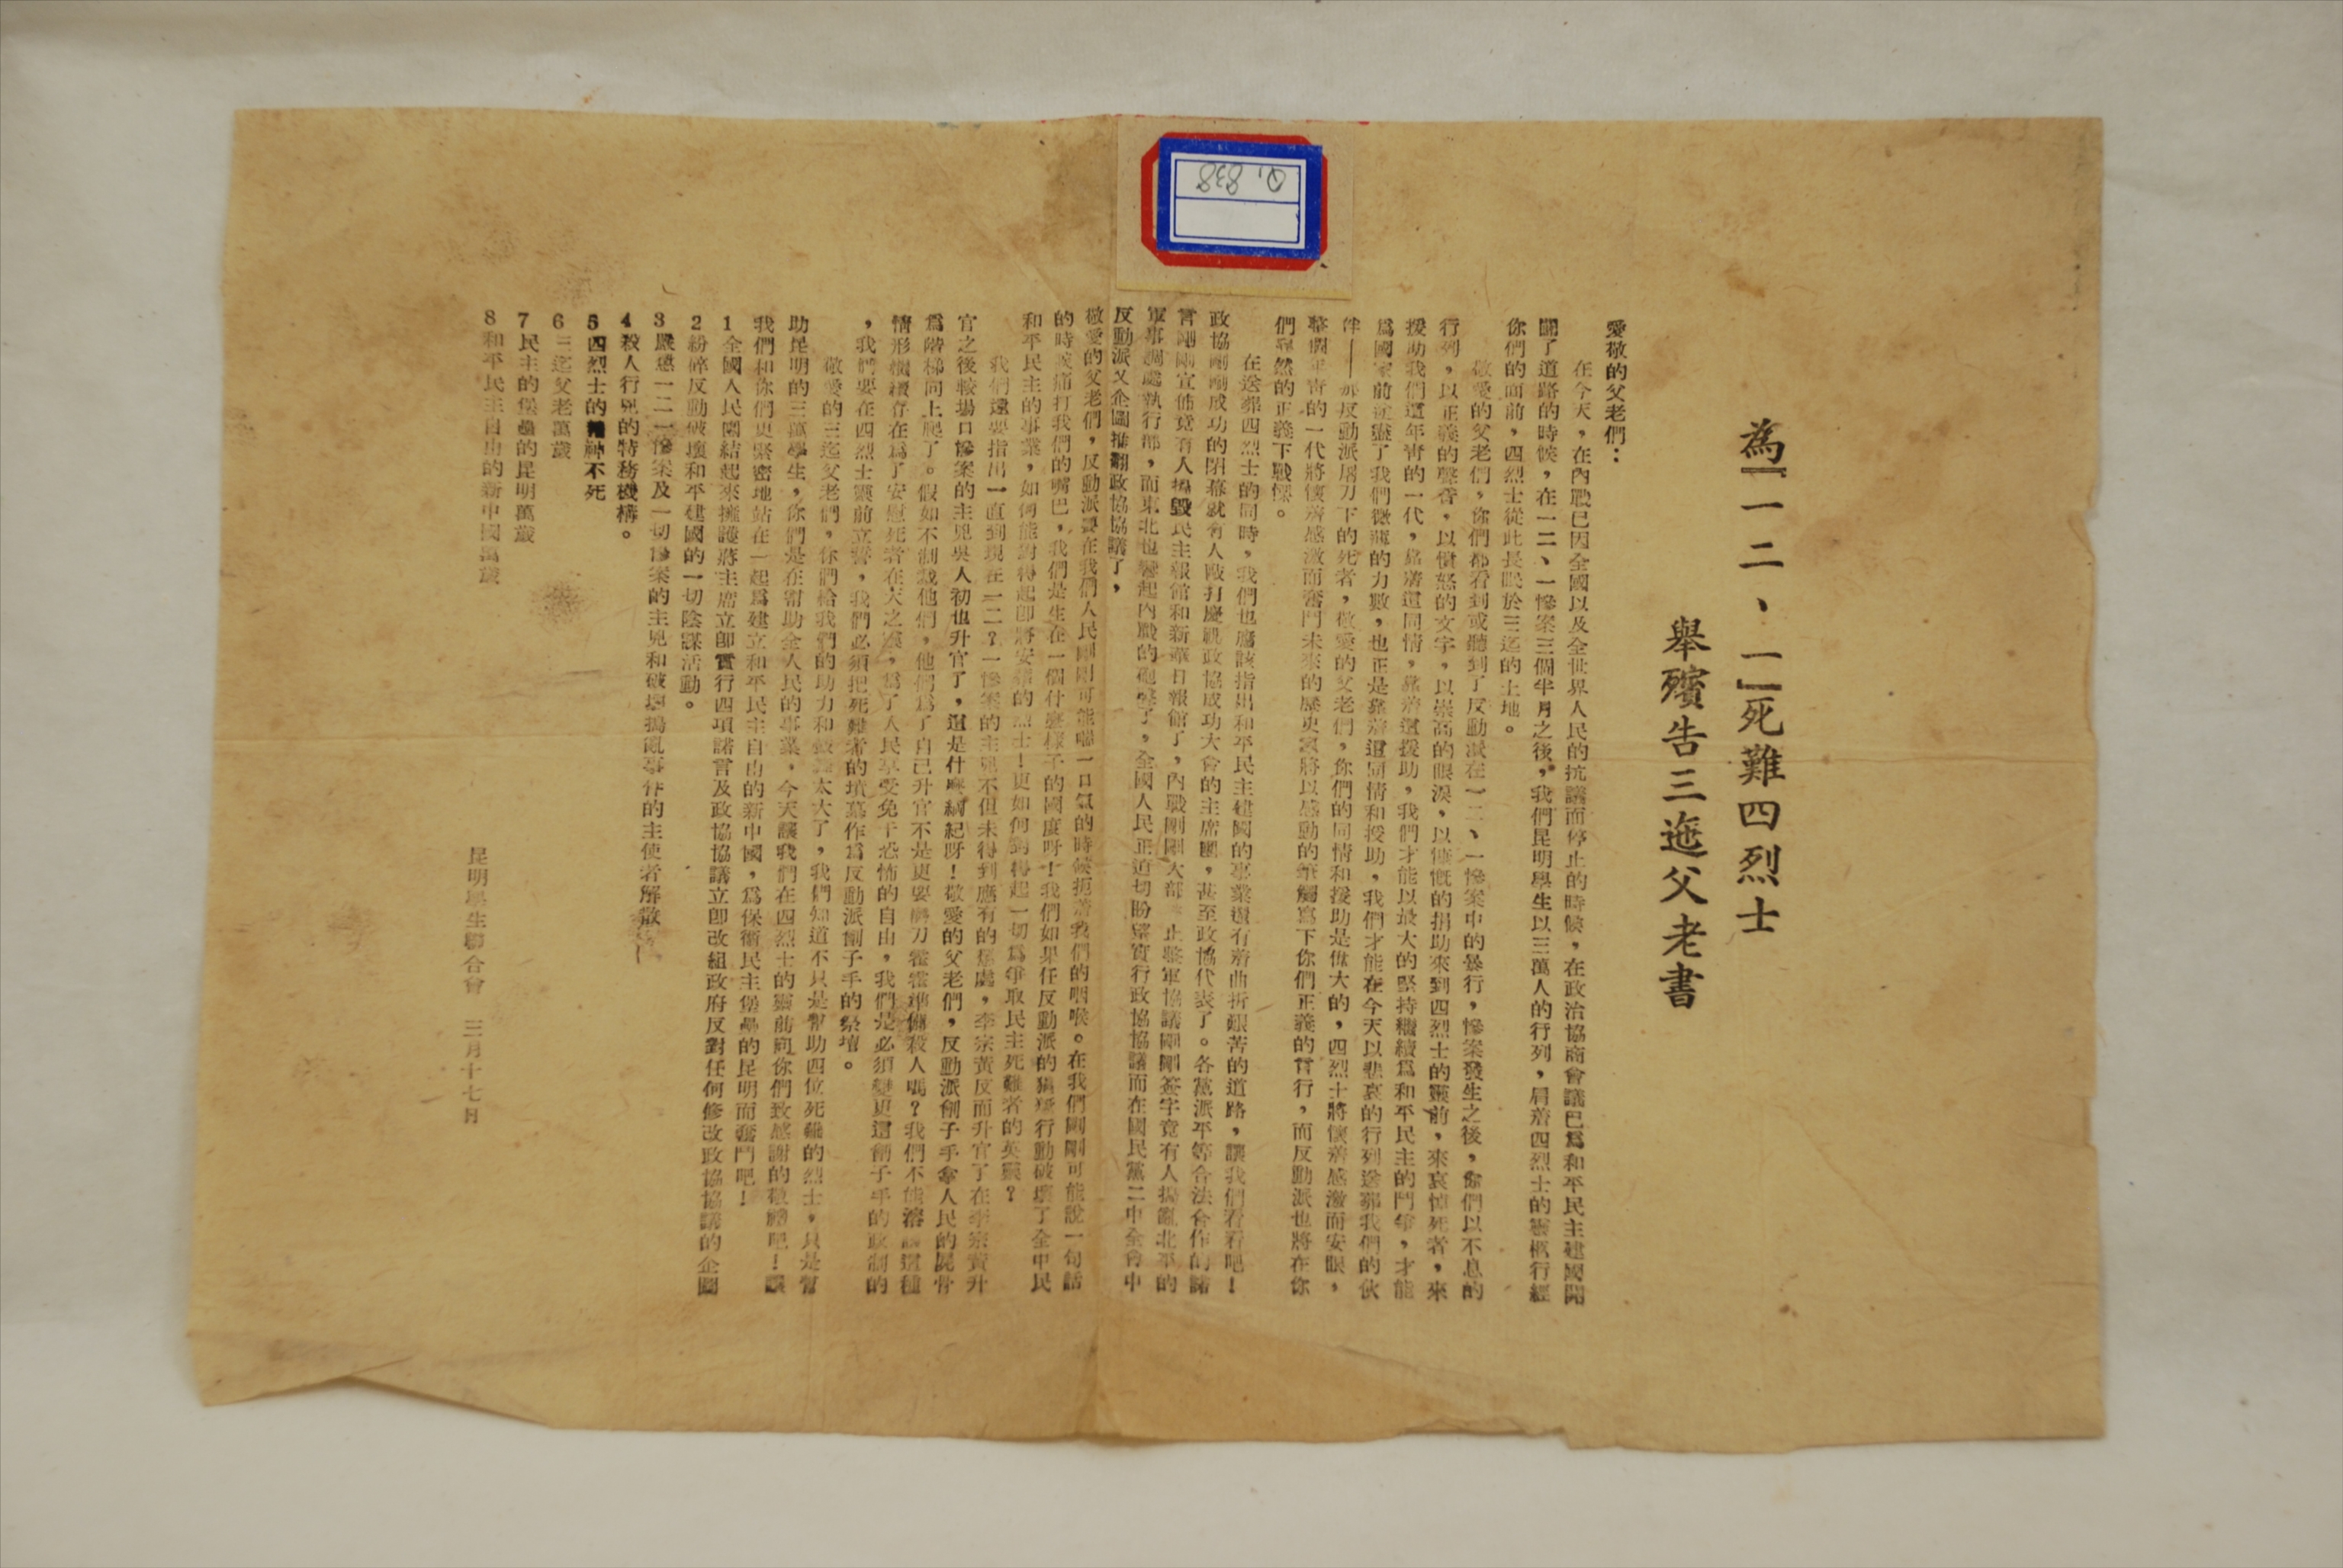 為「一二、一」死難四烈士
舉殯告三迤父老書
愛敬的父老們：
在今天，在內戰已因全國以及全世界人民的抗議而停止的時候，在政治協商會議已爲和平民主建國開
闢了道路的時候，在一二、一慘案三個半月之後，我們昆明學生以三萬人的行列，肩着四烈士的靈柩行經
你們的面前，四烈士從此長眠於三迤的土地。
敬愛的父老們，你們都看到或聽到了反動派在一二、一慘案中的暴行，慘案發生之後，你們以不息的
行列，以正義的聲音，以憤怒的文字，以崇高的眼淚，以慷慨的捐助來到四烈士的靈前，來哀悼死者，來
援助我們這年青的一代，靠着這同情，靠着這援助，我們才能以最大的堅持繼續爲和平民主的鬥爭，才能
爲國家前途盡了我們微薄的力數，也正是靠着這同情和援助，我們才能在今天以悲哀的行列送葬我們的伙
伴——那反動派屠刀下的死者，敬愛的父老們，你們的同情和援助是偉大的，四烈士將懷着感激而安眠，
整個年青的一代將懷着感激而奮鬥未來的歷史家將以感動的筆觸寫下你們正義的言行，而反動派也將在你
們尋然的正義下戰慄。
在送葬四烈士的同時，我們也應該指出和平民主建國的事業還有着曲折艱苦的道路，讓我們看看吧！
政協剛剛成功的閉幕就有人毆打慶祝政協成功大會的主席團，甚至政協代表了。各黨派平等合法合作的諾
言剛剛宣佈竟有人搗毀民主報館和新華日報館了，內戰剛剛大部 止整軍協議剛剛簽字竟有人搗亂北平的
軍事調處執行部，而東北也響起內戰的砲聲了，全國人民正迫切盼望實行政協協議而在國民黨二中全會中
反動派又企圖推翻政協協議了，
敬愛的父老們，反動派要在我們人民剛剛可能喘一口氣的時候扼着我們的咽喉。在我們剛剛可能說一句話
的時候痛打我們的嘴巴，我們是生在一個什麼樣子的國度呀！我們如果任反動派的猖獗行動破壞了全中民
和平民主的事業，如何能對得起即將安葬的烈士！更如何對得起一切爲爭取民主死難者的英靈？
我們還要指出一直到現在一二？一慘案的主兇不但未得到應有的懲處，李宗黃反而升官了在李宗黃升
官之後較場口慘案的主兇吳人初也升官了，這是什麼綱紀呀！敬愛的父老們，反動派劊子手拿人民的屍骨
爲階梯向上爬了。假如不制裁他們，他們爲了自己升官不是更要磨刀霍霍準備殺人嗎？我們不能容 這種
情形繼續存在爲了安慰死者在天之靈，爲了人民享受免于恐怖的自由，我們是必須變更這劊子手的政制的
，我們要在四烈士靈前立誓，我們必須把死難者的墳墓作爲反動派劊子手的祭壇。
敬愛的三迤父老們，你們給我們的助力和 太大了，我們知道不只是幫助四位死難的烈士，只是幫
助昆明的三萬學生，你們是在幫助全人民的事業，今天讓我們在四烈士的靈前向你們致感謝的敬禮吧！讓
我們和你們更緊密地站在一起爲建立和平民主自由的新中國，爲保衛民主堡壘的昆明而奮鬥吧！
1全國人民團結起來擁護蔣主席立卽實行四項諾言及政協協議立卽改組政府反對任何修改政協協議的企圖
2粉碎反動破壞和平建國的一切陰謀活動。
3嚴懲一二一慘案及一切慘案的主兇和破壞搗亂事件的主使者解散
4殺人行兇的特務機構。
5四烈士的精神不死
6三迤父老萬歲
7民主的堡壘的昆明萬歲
8和平民主自由的新中國萬歲
昆明學生聯合會 三月十七日
Q1 838